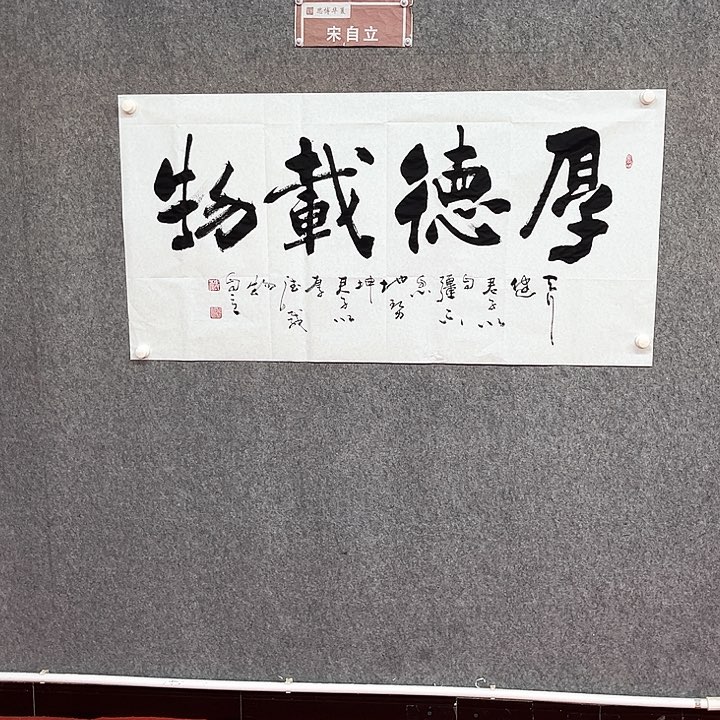 宋自立
厚德載物
天行
健
君子以
自彊不
息
地勢
坤
君子以
厚
德載
物
自立